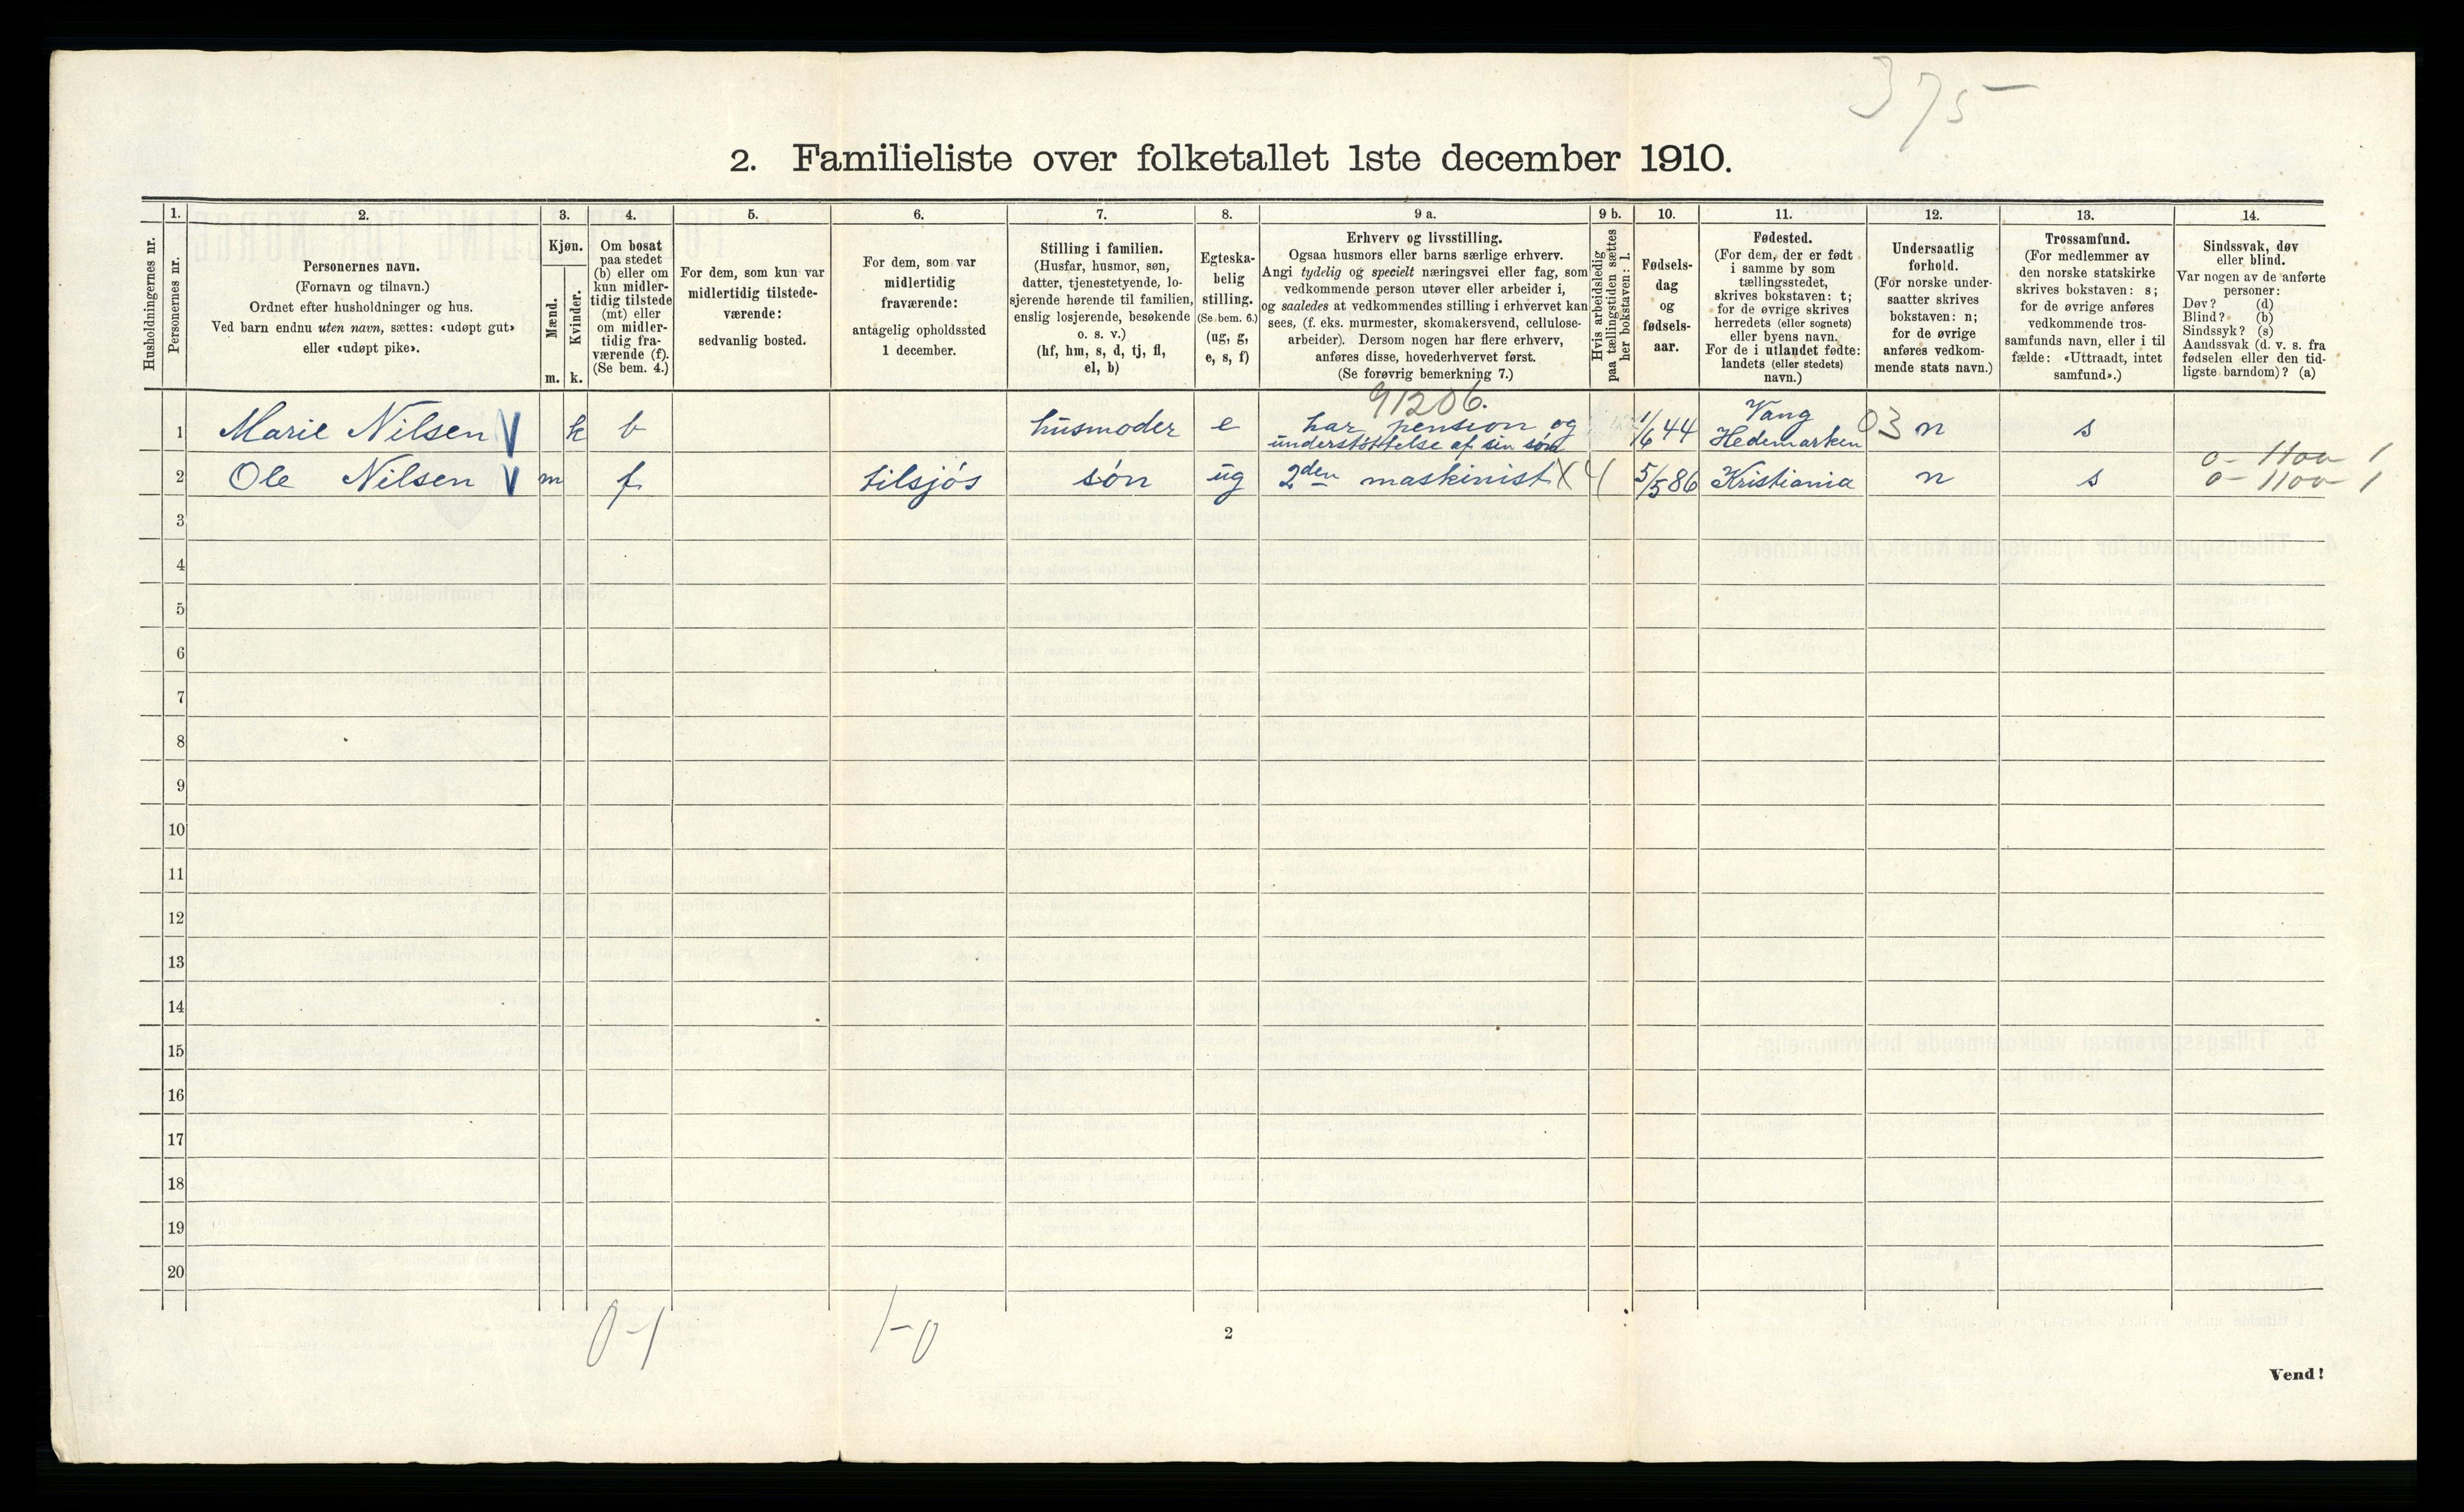 375-
2. Familieliste over folketallet 1ste december 1910.
Husholdningernes nr.
1.
Personernes nr.
2.
Personernes navn.
(Fornavn og tilnavn.)
Ordnet efter husholdninger og hus.
Ved barn endnu uten navn, sættes: «udøpt gut»
eller «udøpt pike».
3.
Kjøn.
Mænd.
m.
Kvinder.
k.
4.
Om bosat
paa stedet
(b) eller om
kun midler-
tidig tilstede
(mt) eller
om midler-
tidig fra-
værende (f).
(Se bem. 4.)
5.
For dem, som kun var
midlertidig tilstede-
værende:
sedvanlig bosted.
6.
For dem, som var
midlertidig
fraværende:
antagelig opholdssted
1 december.
7.
Stilling i familien.
(Husfar, husmor, søn,
datter, tjenestetyende, lo-
sjerende hørende til familien,
enslig losjerende, besøkende
o. s. v.)
(hf, hm, s, d, tj, fl,
el, b)
8.
Egteska-
belig
stilling.
(Se bem. 6.)
(ug, g,
e, s, f)
9 a.
Erhverv og livsstilling.
Ogsaa husmors eller barns særlige erhverv.
Angi tydelig og specielt næringsvei eller fag, som
vedkommende person utøver eller arbeider i,
og saaledes at vedkommendes stilling i erhvervet kan
sees, (f. eks. murmester, skomakersvend, cellulose-
arbeider). Dersom nogen har flere erhverv,
anføres disse, hovederhvervet først.
(Se forøvrig bemerkning 7.)
9 b.
Hvis arbeidsledig
paa tællingstiden sættes
her bokstaven: l.
10.
Fødsels-
dag
og
fødsels-
aar.
11.
Fødested.
(For dem, der er født
i samme by som
tællingsstedet,
skrives bokstaven: t;
for de øvrige skrives
herredets (eller sognets)
eller byens navn.
For de i utlandet fødte:
landets (eller stedets)
navn.)
12.
Undersaatlig
forhold.
(For norske under-
saatter skrives
bokstaven: n;
for de øvrige
anføres vedkom-
mende stats navn.)
13.
Trossamfund.
(For medlemmer av
den norske statskirke
skrives bokstaven: s;
for de øvrige anføres
vedkommende tros-
samfunds navn, eller i til
fælde: «Uttraadt, intet
samfund».)
14.
Sindssvak, døv
eller blind.
Var nogen av de anførte
personer:
Døv? (d)
Blind? (b)
Sindssyk? (s)
Aandssvak (d. v. s. fra
fødselen eller den tid-
ligste barndom)? (a)
91206.
1 Marie Nilsen V k b husmoder e har pension og understöttelse af sin sön 1/6 44 Vang Hedemarken 03 n s
0- 1100- 1
2 Ole Nilsen V m f tilsjös sön ug 2den maskinist X 4 5/5 86 Kristiania n s 0- 1100- 1
3
4
5
6
7
8
9
10
11
12
13
14
15
16
17
18
19
20
0-1
1-0
2
Vend!